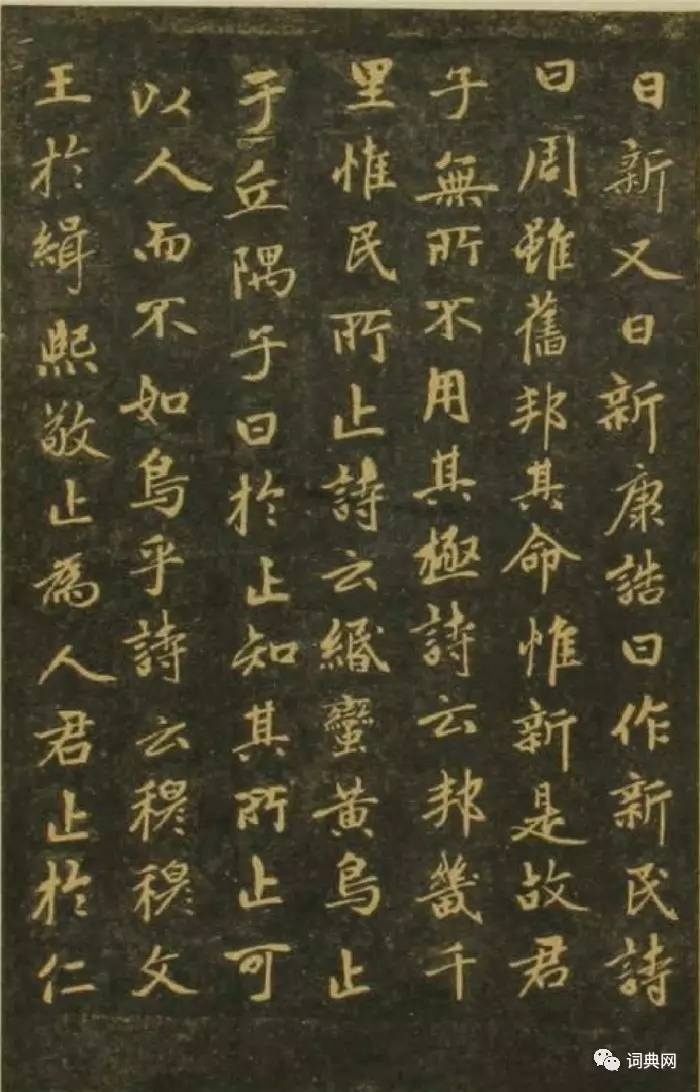 日新又日新康誥曰作新民詩
曰周雖舊邦其命惟新是故君
子無所不用其極詩云邦畿千
里惟民所止詩云緡蠻黃鳥止
于丘隅子曰於止知其所止可
以人而不如鳥乎詩云穆穆文
王於緝熙敬止為人君止於仁
词典网